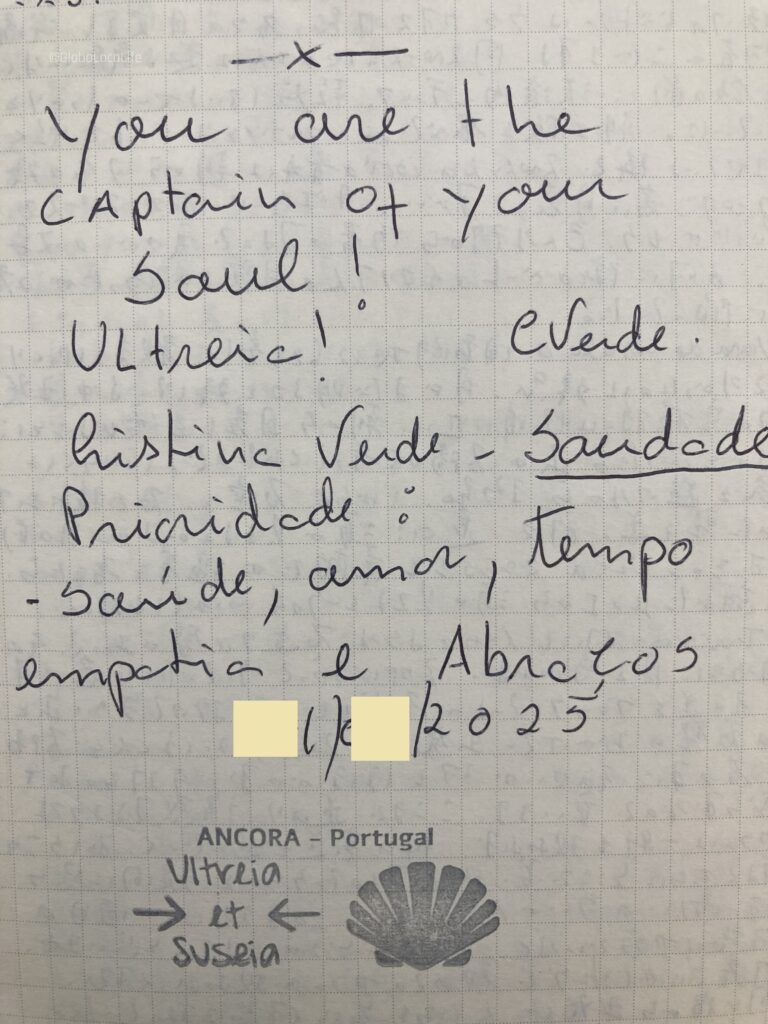 @GlobaLocalLife
— x —
You are the
CAptain of your
soul!
ULtreia!
CVerde.
Cristina Verde - Saudade
Prioridade :
- saúde, amor, tempo
empatia e Abraços
1/0 /2025
ANCORA – Portugal
Ultreia
→ et ←
Suseia